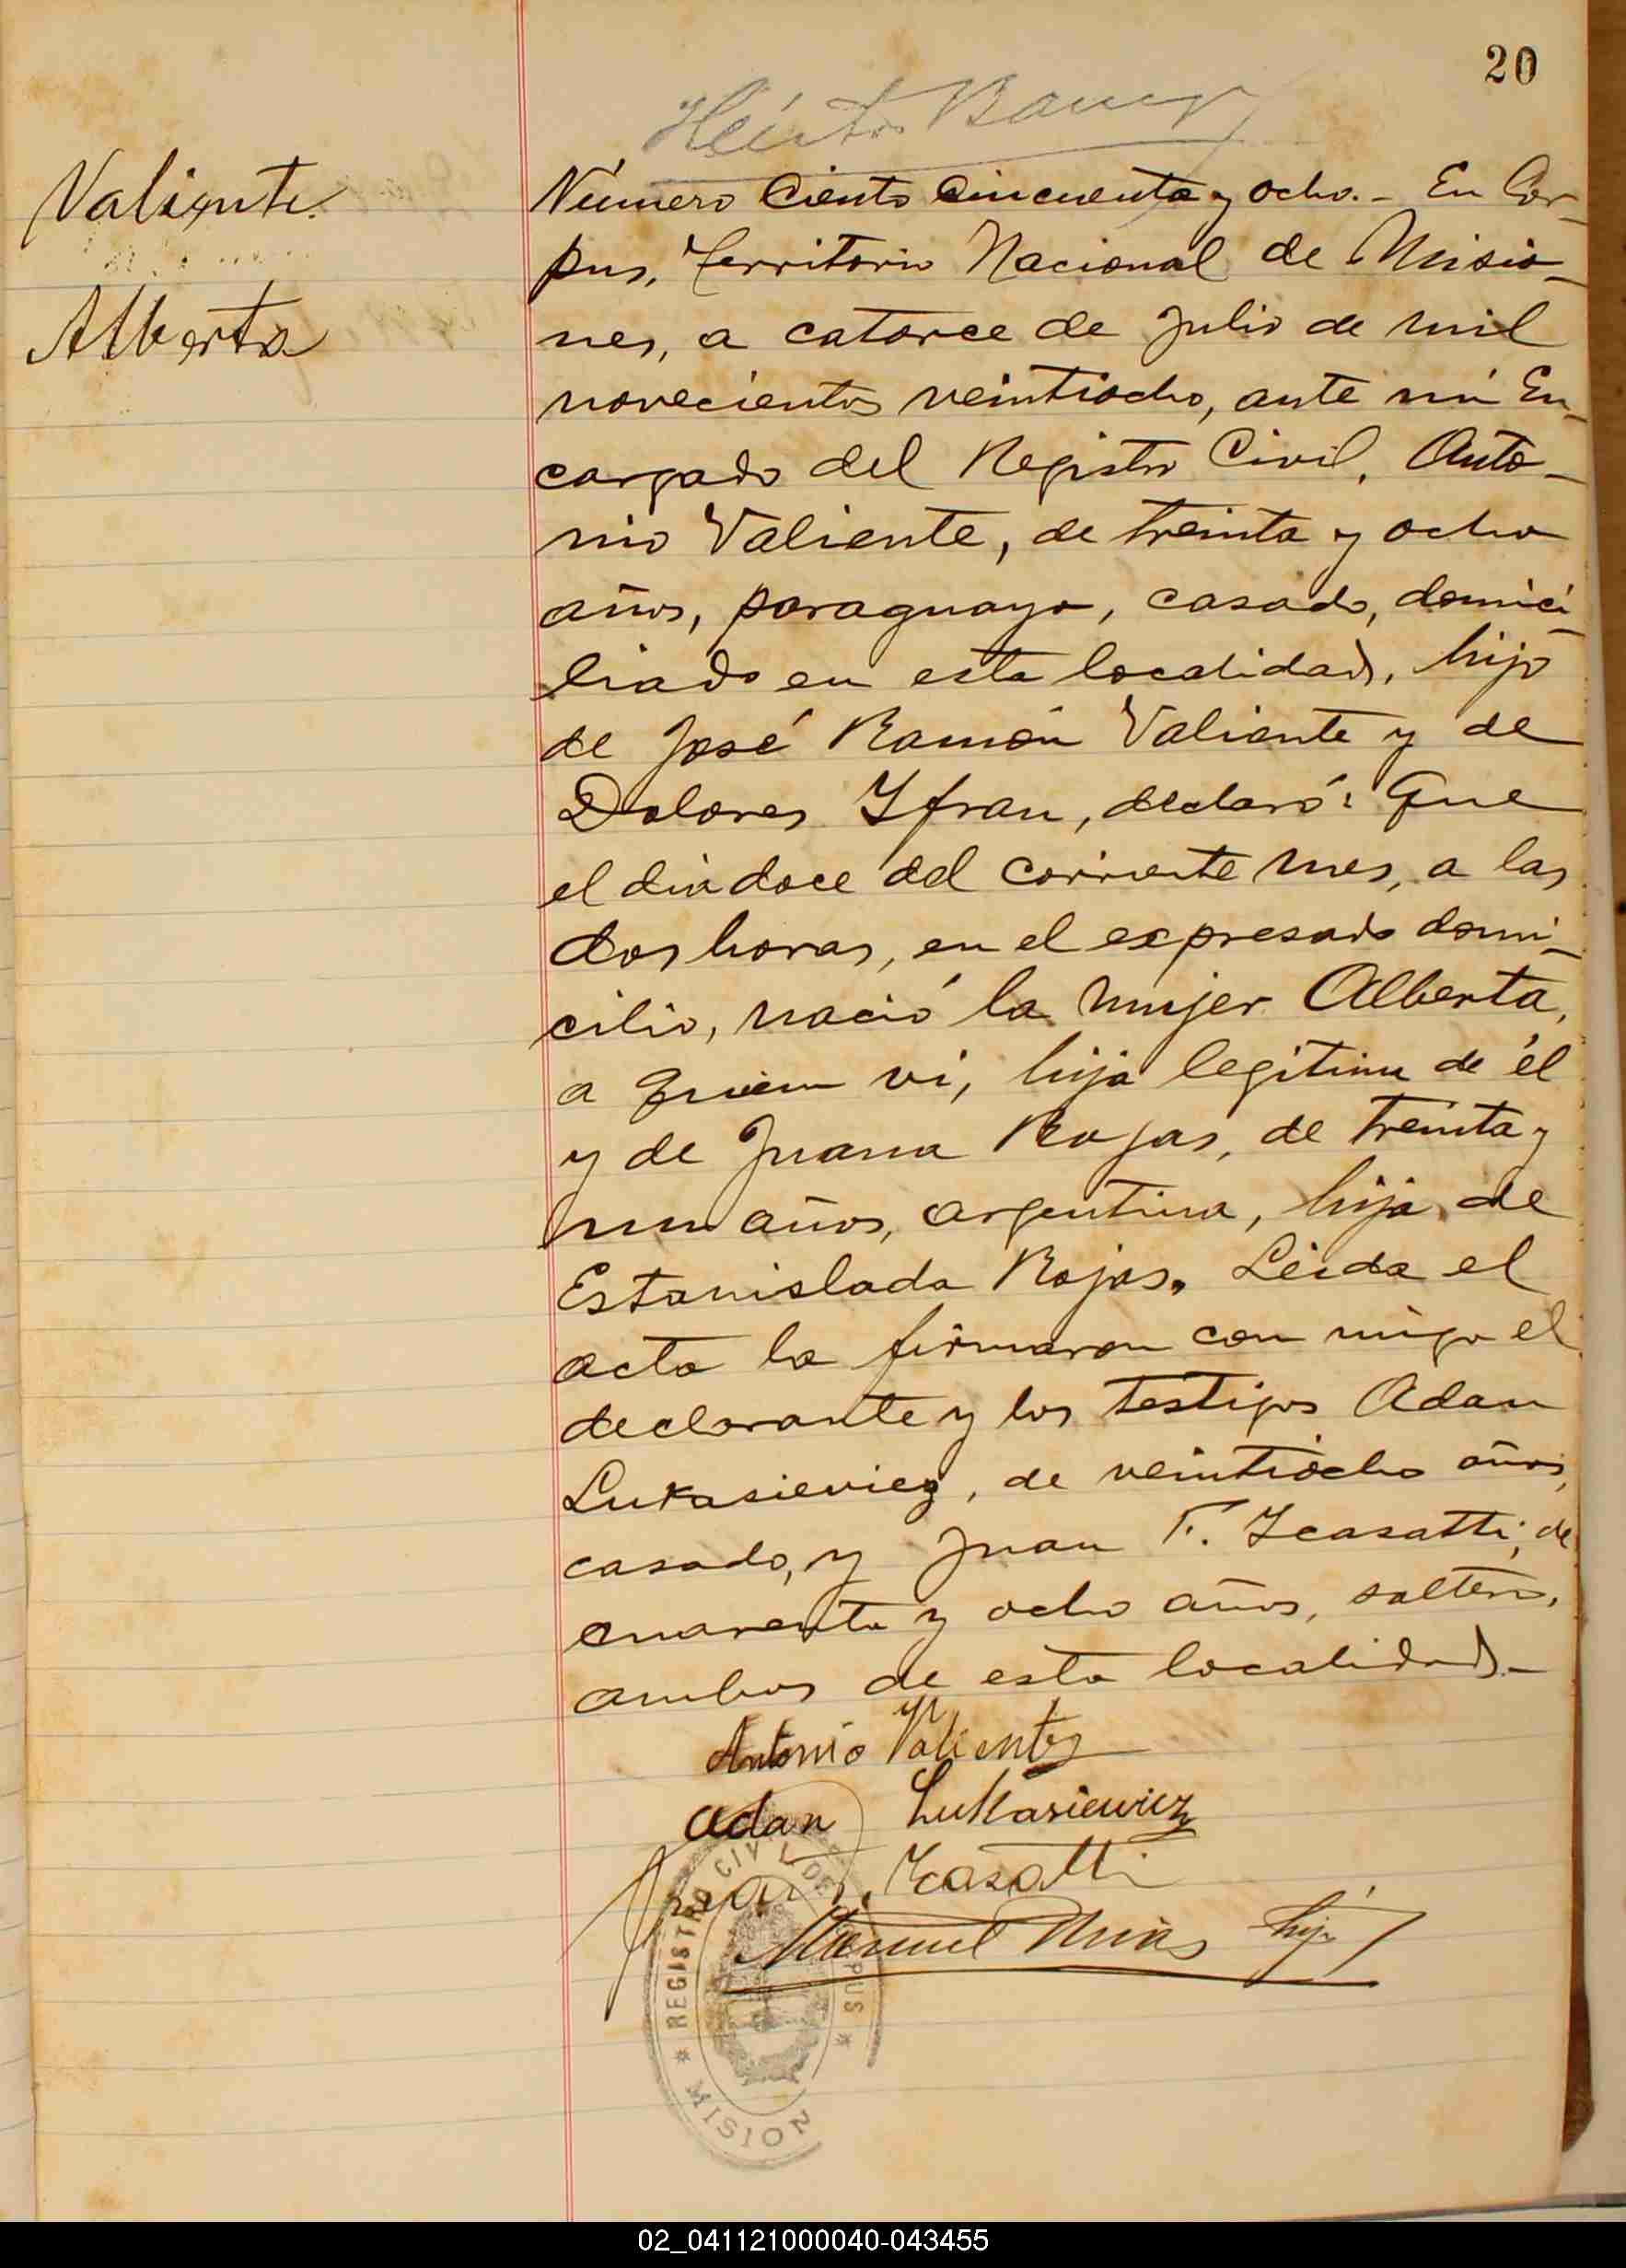 20
Héctor
Valiente
Alberta
Número Ciento Cincuenta y ocho. - En Cor-
pus, Territorio Nacional de Misio-
nes, a catorce de Julio de mil
novecientos veintiocho, ante mí En-
cargado del Registro Civil, Anto-
nio Valiente, de treinta y ocho
años, paraguayo, casado, domici-
liado en esta localidad, hijo
de José Ramón Valiente y de
Dolores Yfran, declaró: Que
el día doce del corriente mes, a las
dos horas, en el expresado domi-
cilio, nació la mujer Alberta,
a quien vi, hija legítima de él
y de Juana Rojas, de treinta y
un años, argentina, hija de
Estanislada Rojas. Leída el
acta la firmaron con migo el
declarante y los testigos Adan
Lukasieviez, de veintiocho años,
casado, y Juan F. Icasatti, de
cuarenta y ocho años, soltero,
ambos de esta localidad.-
Antonio Valiente
adan Lukasiewicz
Juan F. Icasatti
Manuel hijo
REGISTRO CIVIL DE CORPUS * MISION
02_041121000040-043455